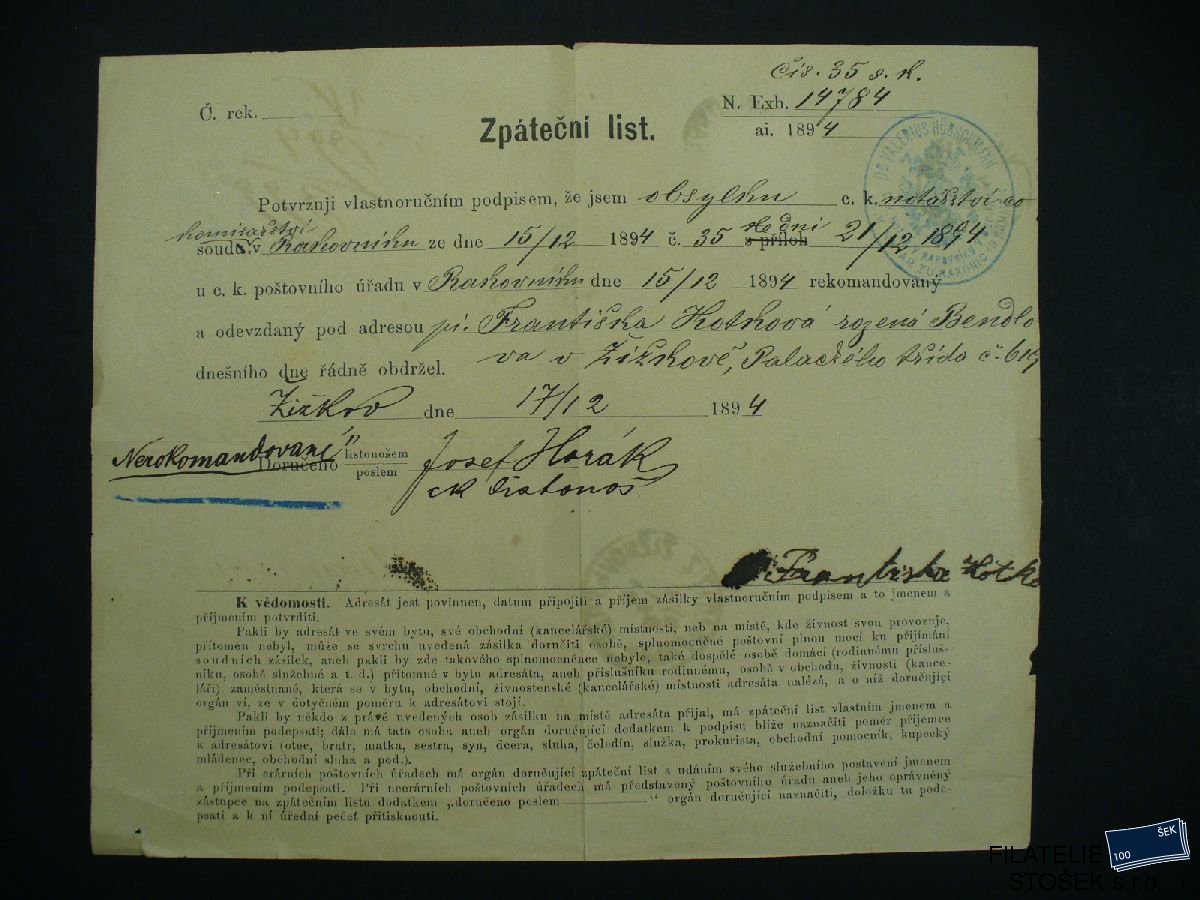 čís. 35 s. k.
Č. rek.
N. Exh. 14784
ai. 1894
Zpáteční list.
DR VALERIUS HÜBSCHMANN
Potvrzuji vlastnoručním podpisem, že jsem obsylku c. k. notářství co
komisařství
soudu v Rakovníku ze dne 15/12 1894 č. 35 s příloh 21/12 1894
u c. k. poštovního úřadu v Rakovníku dne 15/12 1894 rekomandovaný
a odevzdaný pod adresou pí. Františka Kotková rozená Bendlo
va v Žižkově, Palackého třída č. 619
dnešního dne řádně obdržel.
Žižkov dne 17/12 1894
Nerokomandované
Doručeno listonošem
poslem
Josef Horák
ck listonoš
Františka Kotko
K vědomosti. Adresát jest povinnen, datum připojiti a příjem zásilky vlastnoručním podpisem a to jmenem a
příjmením potvrditi.
Pakli by adresát ve svém bytu, své obchodní (kancelářské) místnosti, neb na místě, kde živnost svou provozuje,
přítomen nebyl, může se svrchu uvedená zásilka doručiti osobě, splnomocněné poštovní plnou mocí ku přijímání
soudních zásilek, aneb pakli by zde takového splnomocněnce nebylo, také dospělé osobě domácí (rodinnému příslus-
níku, osobě služebné a t. d.) přítomné v bytu adresáta, aneb příslušníku rodinnému, osobě v obchodu, živnosti (kance-
láři) zaměstnané, která se v bytu, obchodní, živnostenské (kancelářské) místnosti adresáta nalézá, a o níž doručující
orgán ví, že v dotyčném poměru k adresátovi stojí.
Pakli by někdo z právě uvedených osob zásilku na místě adresáta přijal, má zpáteční list vlastním jmenem a
příjmením podepsati; dále má tato osoba aneb orgán doručující dodatkem k podpisu blíže naznačiti poměr příjemce
k adresátovi (otec, bratr, matka, sestra, syn, dcera, sluha, čeledín, služka, prokurista, obchodní pomocník, kupecký
mládenec, obchodní sluha a pod.).
Při erárních poštovních úřadech má orgán doručující zpáteční list s udáním svého služebního postavení jmenem
a příjmením podepsati. Při neerárních poštovních úřadech má představený poštovního úřadu aneb jeho oprávněný
zástupce na zpátečním listu dodatkem „doručeno poslem " orgán doručující naznačiti, doložku tu pode-
psati a k ní úřední pečeť přitisknouti.
100 ŠEK
FILATELIE
STOŠEK s.r.o.